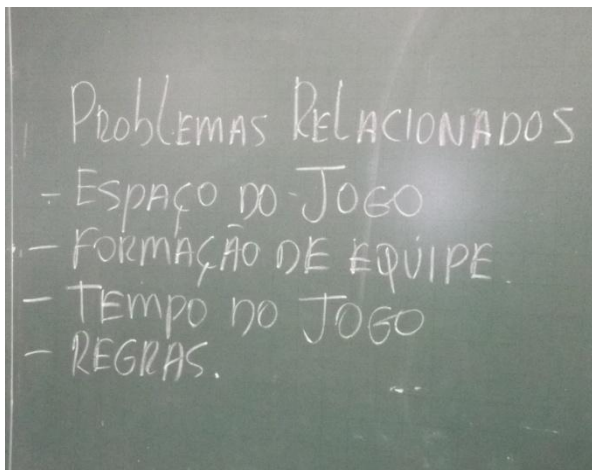 PROBLEMAS RELACIONADOS
- ESPAÇO DO JOGO
- FORMAÇÃO DE EQUIPE
- TEMPO DO JOGO
- REGRAS.